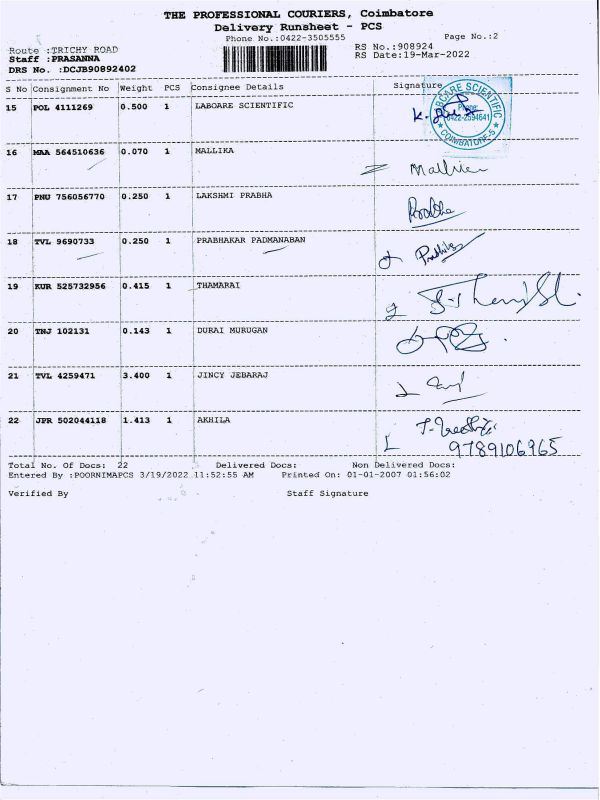 THE PROFESSIONAL COURIERS, Coimbatore
Delivery Runsheet - PCS
Phone No.:0422-3505555 Page No.:2
Route :TRICHY ROAD RS No.:908924
Staff :PRASANNA RS Date:19-Mar-2022
DRS No. :DCJB90892402
S No Consignment No Weight PCS Consignee Details Signature
15 POL 4111269 0.500 1 LABOARE SCIENTIFIC
LABCARE SCIENTIFIC
Phone:
0422-2594641
★ COIMBATORE-5 ★
16 MAA 564510636 0.070 1 MALLIKA
17 PNU 756056770 0.250 1 LAKSHMI PRABHA
18 TVL 9690733 0.250 1 PRABHAKAR PADMANABAN
19 KUR 525732956 0.415 1 THAMARAI
20 TNJ 102131 0.143 1 DURAI MURUGAN
21 TVL 4259471 3.400 1 JINCY JEBARAJ
22 JPR 502044118 1.413 1 AKHILA
9789106965
Total No. Of Docs: 22 Delivered Docs: Non Delivered Docs:
Entered By :POORNIMAPCS 3/19/2022 11:52:55 AM Printed On: 01-01-2007 01:56:02
Verified By Staff Signature